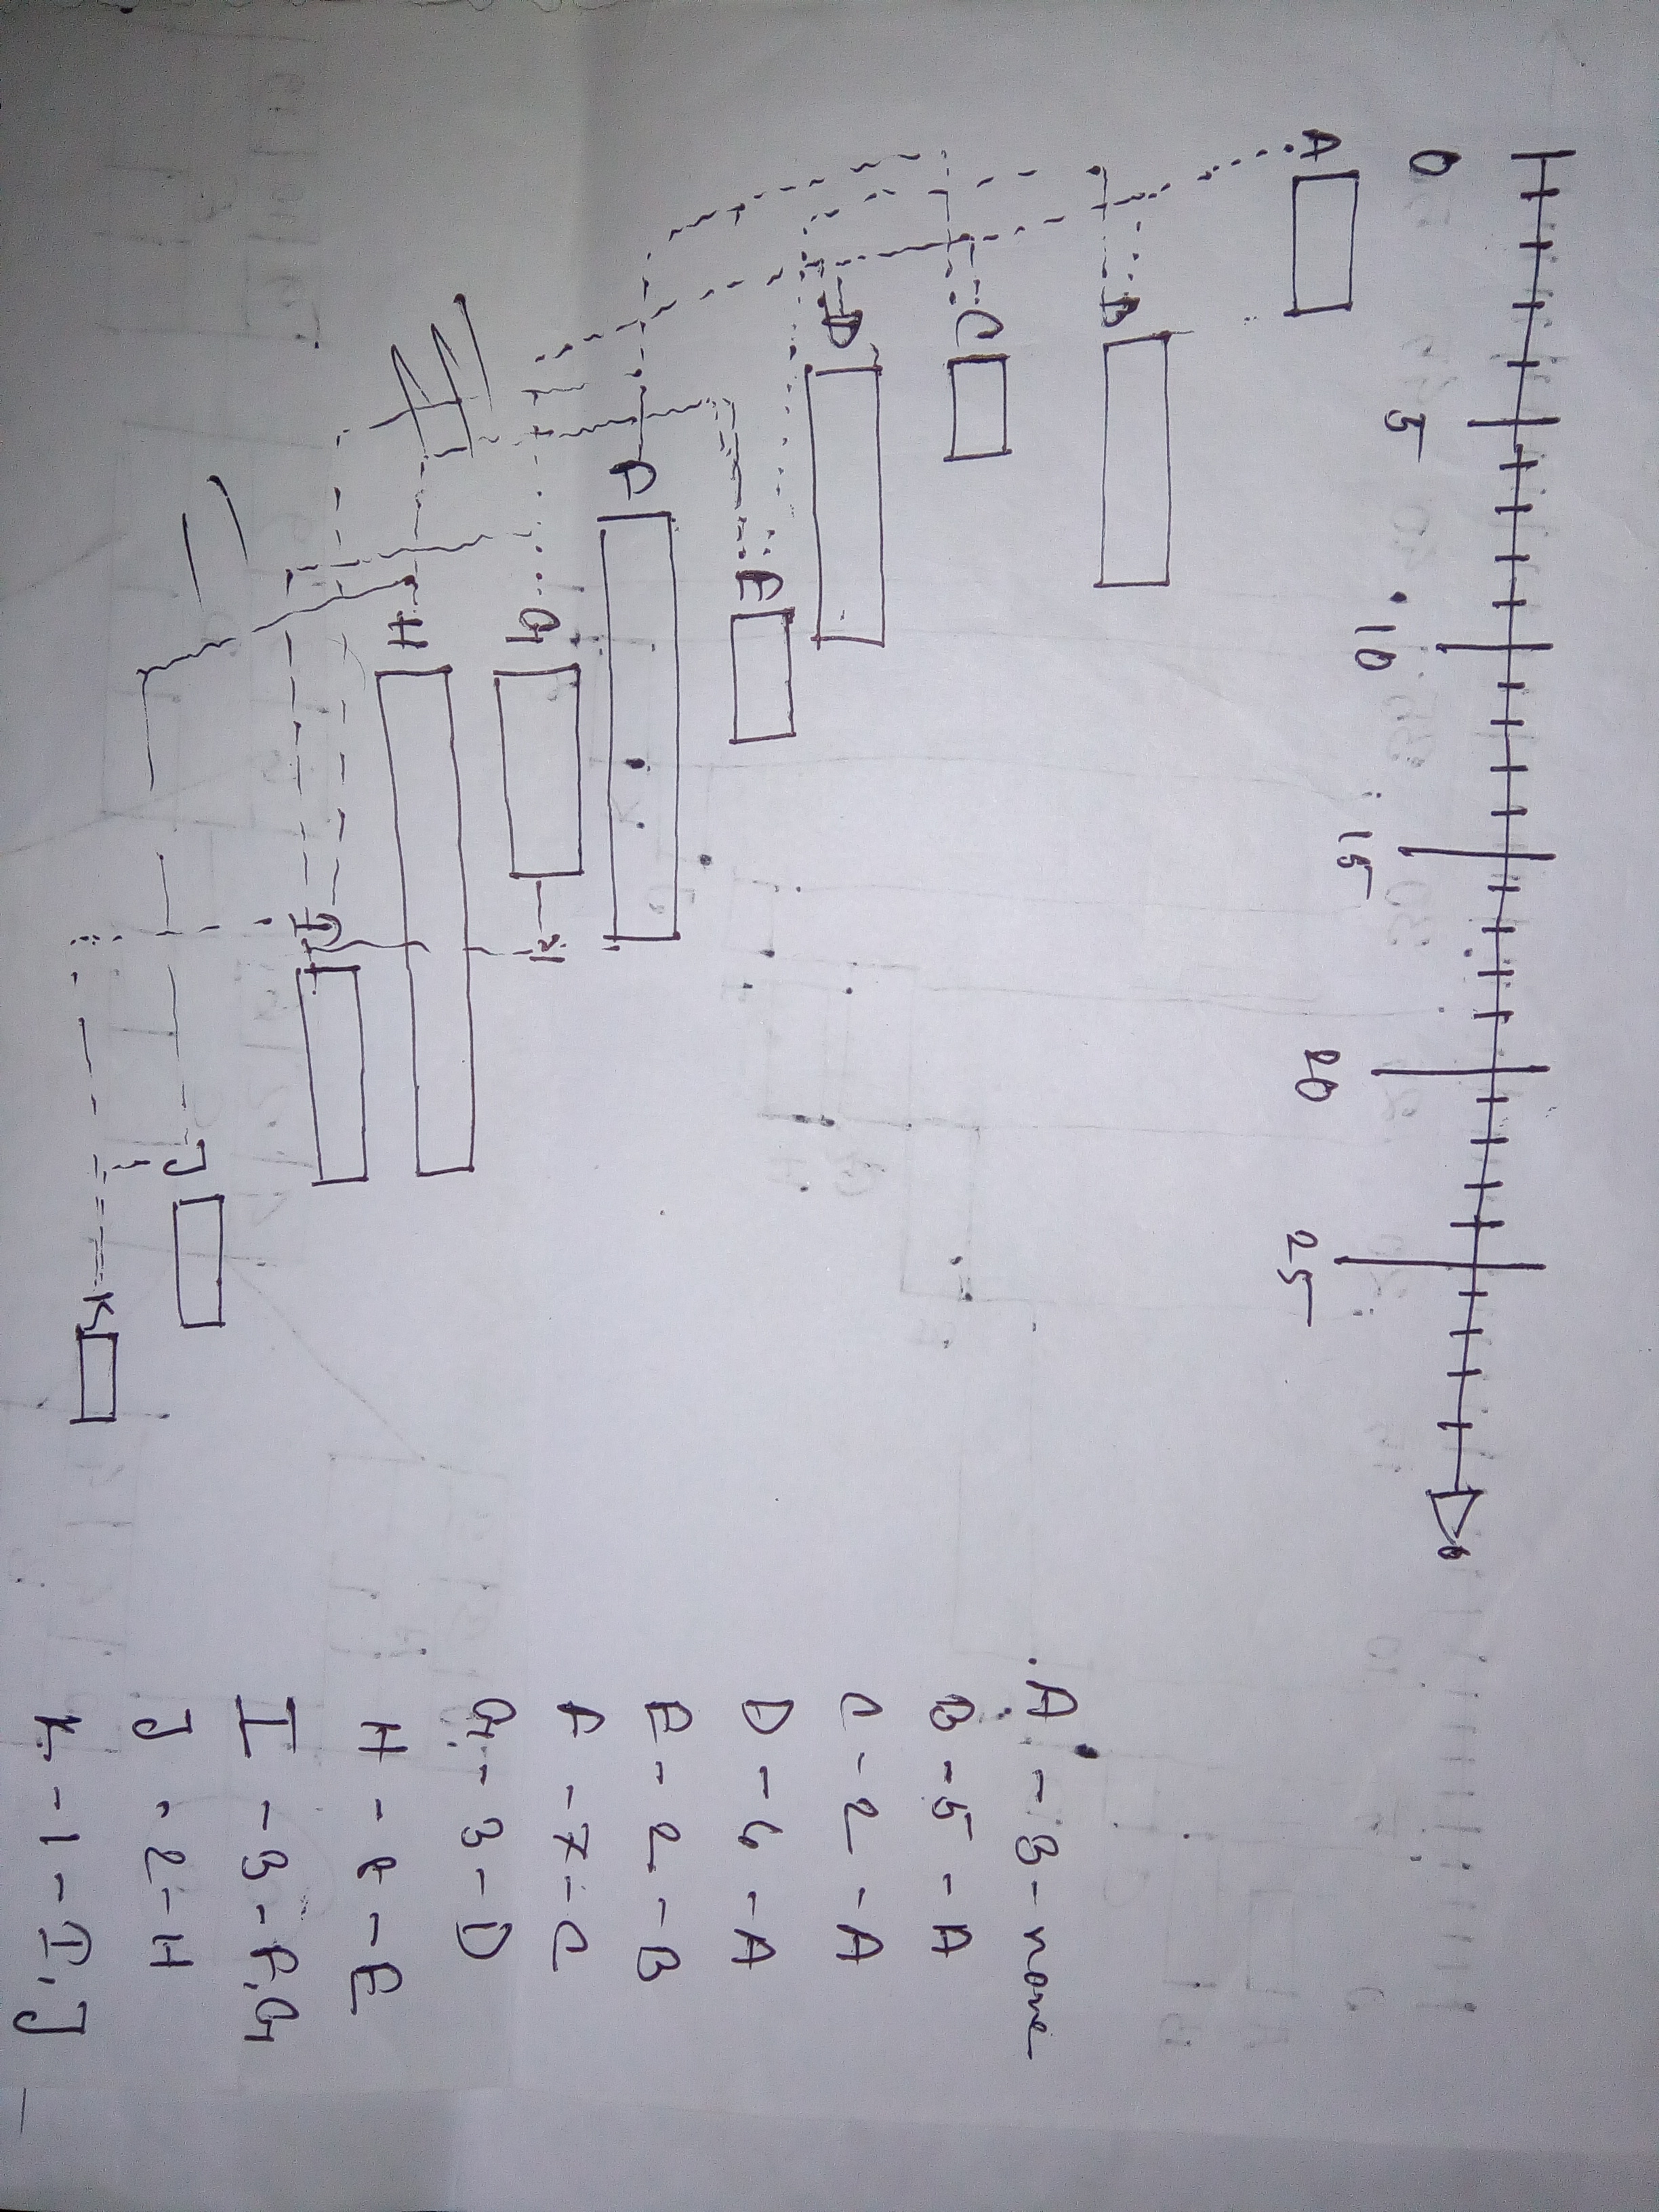 0 5 10 15 20 25
A
B
C
D
E
F
G
H
I
J
K
A - 3 - none
B - 5 - A
C - 2 - A
D - 6 - A
E - 2 - B
F - 7 - C
G - 3 - D
H - 8 - E
I - 3 - F, G
J - 2 - H
K - 1 - I, J